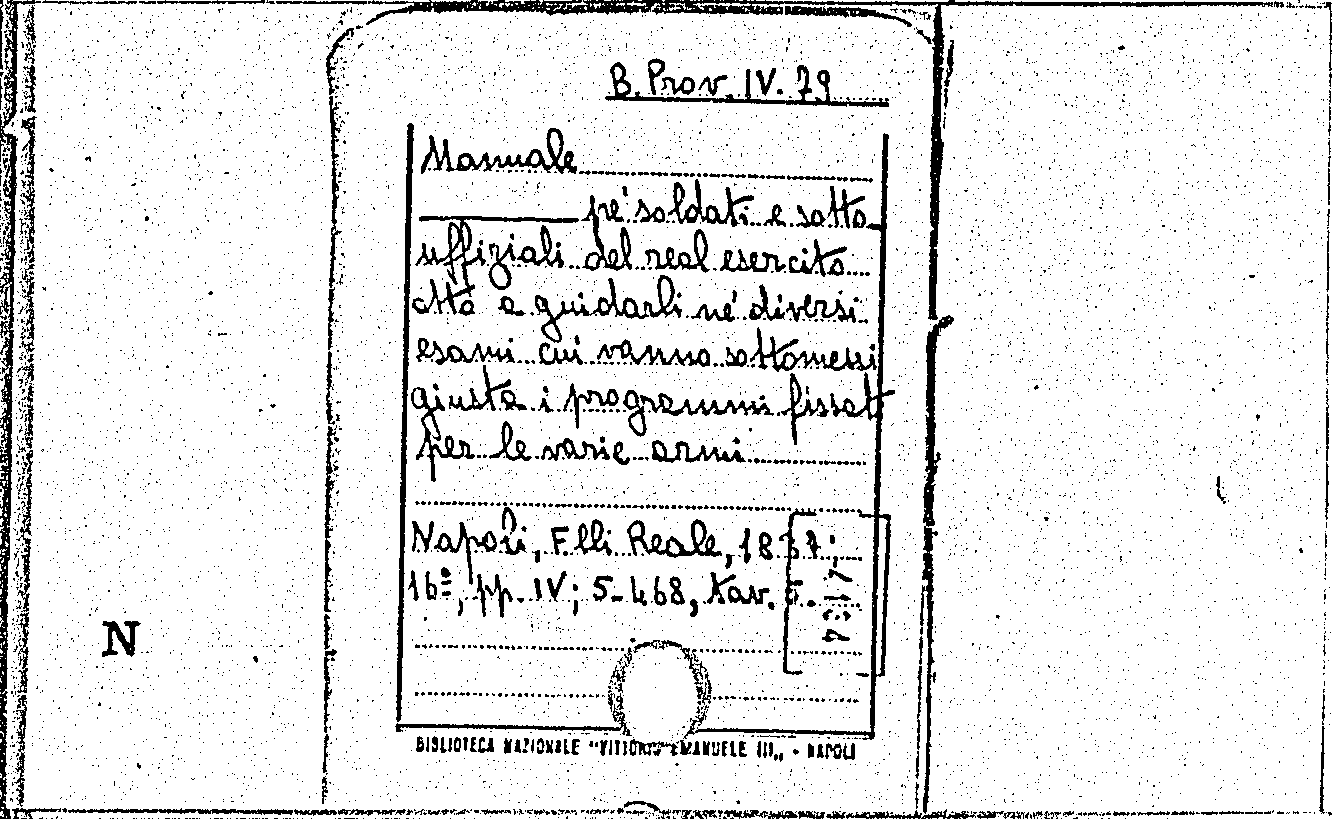 B. Prov. IV. 79
Manuale
pe' soldati e sotto
uffiziali del real esercito
atto a guidarli ne' diversi
esami cui vanno sottomessi
giusta i programmi fissati
per le varie armi
Napoli, F.lli Reale, 1837;
16º, pp. IV; 5-468, tav. 5.
N
BIBLIOTECA NAZIONALE "VITTORIO EMANUELE III„ - NAPOLI